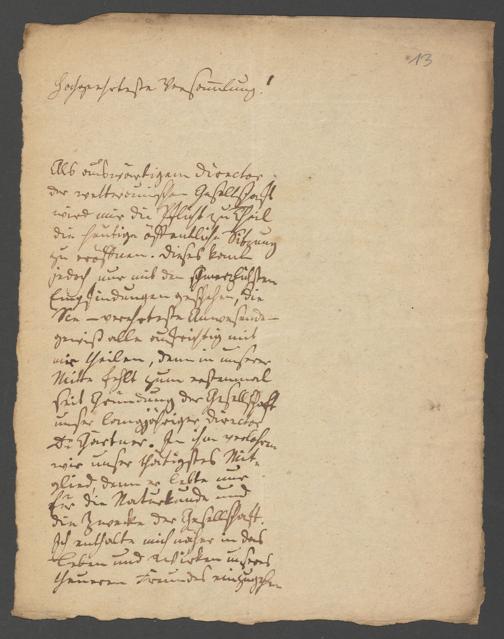 13
Hochgeehrteste Versammlung!
Als auswärtigem Director
der wetterauischen Gesellschaft
wird mir die Pflicht zu Theil
die heutige öffentliche Sitzung
zu eröffnen. Dieses kann
jedoch nur mit den schmerzlichsten
Empfindungen geschehen, die
Sie – verehrteste Anwesende –
gewiß alle aufrichtig mit
mir theilen, denn in unserer
Mitte fehlt zum erstenmal
seit Gründung der Gesellschaft
unser langjähriger Director
Dr Gärtner. In ihm verlohren
wir unser thätigstes Mit-
glied, denn er lebte nur
für die Naturkunde und
die Zwecke der Gesellschaft.
Ich enthalte mich näher in das
Leben und Wirken unseres
theueren Freundes einzugehen